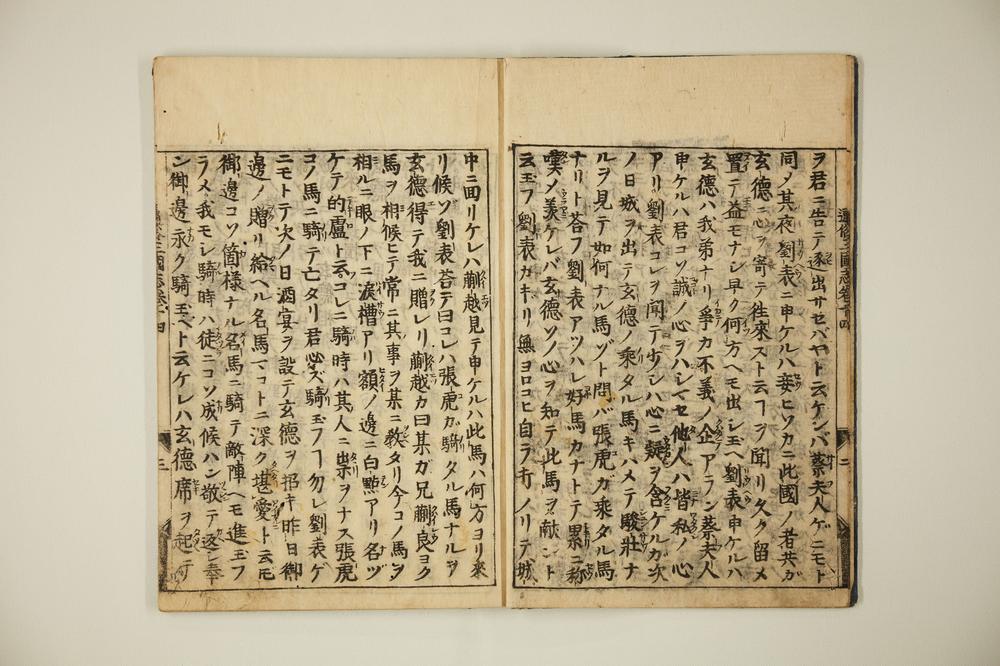 通俗三國志卷十四
ヲ君ニ告テ逐出サセバヤト云ケンバ蔡夫人ゲニモト
同メ其夜劉表ニ申ケルハ妾ヒソカニ此國ノ者共ガ
玄德ニ心ヲ寄テ徃來スト云ヿヲ聞リ久ク留メ
置テ益モナシ早ク何方ヘモ出シ玉ヘ劉表申ケルハ
玄德ハ我弟ナリ爭カ不義ノ企アラン蔡夫人
申ケルハ君コソ誠ノ心ヲハシマセ他人ハ皆私ノ心
アリ劉表コレヲ聞テ少シハ心ニ疑ヲ含ケルガ次
ノ日城ヲ出テ玄德ノ乘タル馬キハメテ駿壯ナ
ルヲ見テ如何ナル馬ゾト問バ張虎カ乘タル馬
ナリト荅フ劉表アツハレ好馬カナトテ累ニ称
嘆メ羨ケレバ玄德ソノ心ヲ知テ此馬ヲ献ント
云玉フ劉表カギリ無ヨロコヒ自ラ打ノリテ城
中ニ回リケレハ蒯越見テ申ケルハ此馬ハ何方ヨリ來
リ候ソ劉表荅テ曰コレハ張虎カ騎タル馬ナルヲ
玄德得テ我ニ贈レリ蒯越カ曰某ガ兄蒯良ヨク
馬ヲ相候ヒテ常ニ其事ヲ某ニ敎タリ今コノ馬ヲ
相ルニ眼ノ下ニ淚槽アリ額ノ邊ニ白㸃アリ名ヅ
ケテ的盧ト云コレニ騎時ハ其人ニ祟ヲナス張虎
コノ馬ニ騎テ亡タリ君必ズ騎玉フヿ勿レ劉表ゲ
ニモトテ次ノ日酒宴ヲ設テ玄德ヲ招キ昨日御
邊ノ贈リ給ヘル名馬マコトニ深ク堪愛ト云𪜈
御邊コソ箇樣ナル名馬ニ騎テ敵陣ヘモ進玉フ
ラメ我モシ騎時ハ徒ニコソ成候ハン敬テ返シ奉
ン御邊永ク騎玉ヘト云ケレハ玄德席ヲ起テ